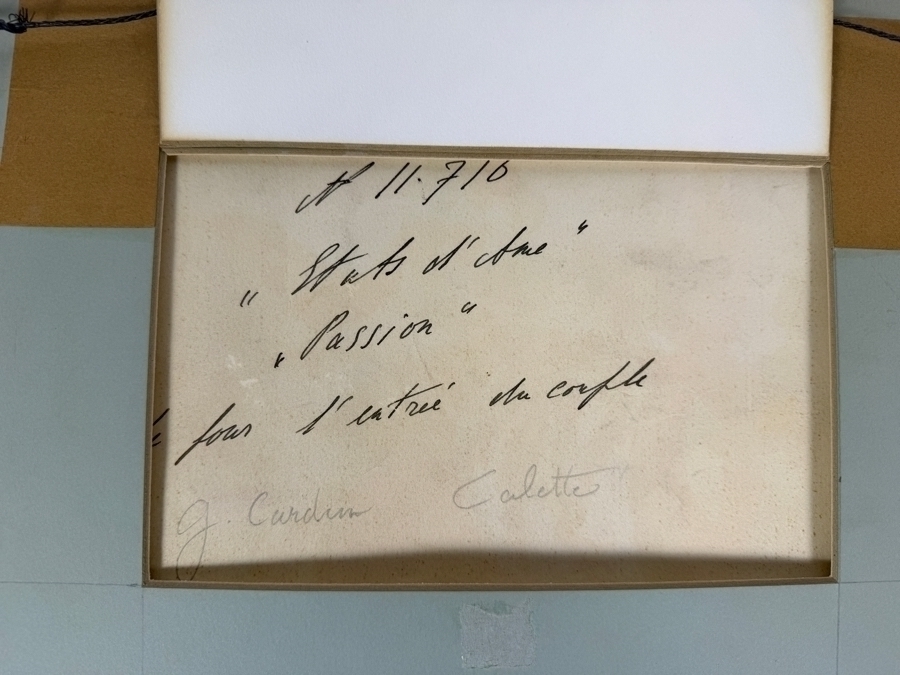 N 11.716
" Etats d'Ame "
" Passion "
pour l'entrée du couple
g. Cardin Calette